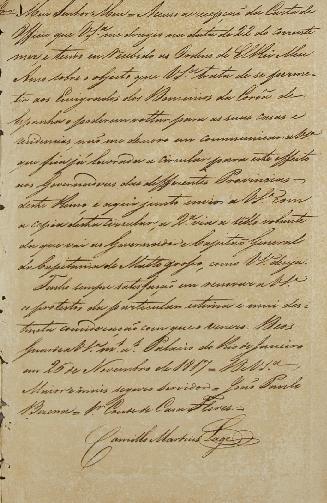 Meu Senhor Meu = Accuso a recepção da Carta de
Officio que V. S.ª me dirigio na data de 22 do corrente
mez, e tendo eu recebido as Ordens de El Rei Meu
Amo sobre o objecto, que V. S.ª trata de se permit-
tir aos Emigrados dos Dominios da Corôa de
Hespanha o poderem voltar para as suas casas e
residencias não me demoro em communicar a V. S.ª
que fica já lavrada a Circular para este effeito
aos Governadores das differentes Provincias
deste Reino e aqui junto envio a V. S.ª com
a copia desta circular, a 2.ª via a sello volante
da que vai ao Governador e Capitão General
da Capitania de Matto grosso, como V. S.ª deseja.
Tenho sempre satisfação em renovar a V. S.ª
os protestos da particular estima e mui dis-
tincta consideração com que sou. Deos
Guarde a V. S.ª m.s a.s Palacio do Rio de Janeiro
em 26 de Novembro de 1817 = De V. S.ª
Maior e mais seguro servidor = João Paulo
Bezerra = S.r Conde de Casa Flores. =
Camillo Martins Lage